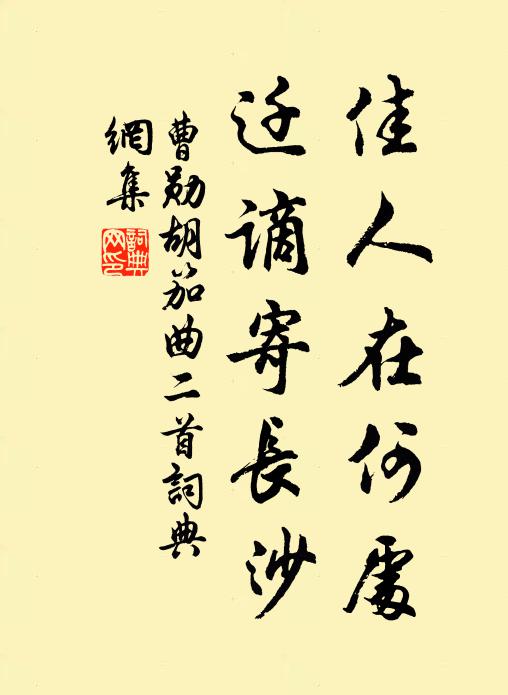 佳人在何處
迁谪寄長沙
曹勛胡笳曲二首詞典
網集
詞典
网印